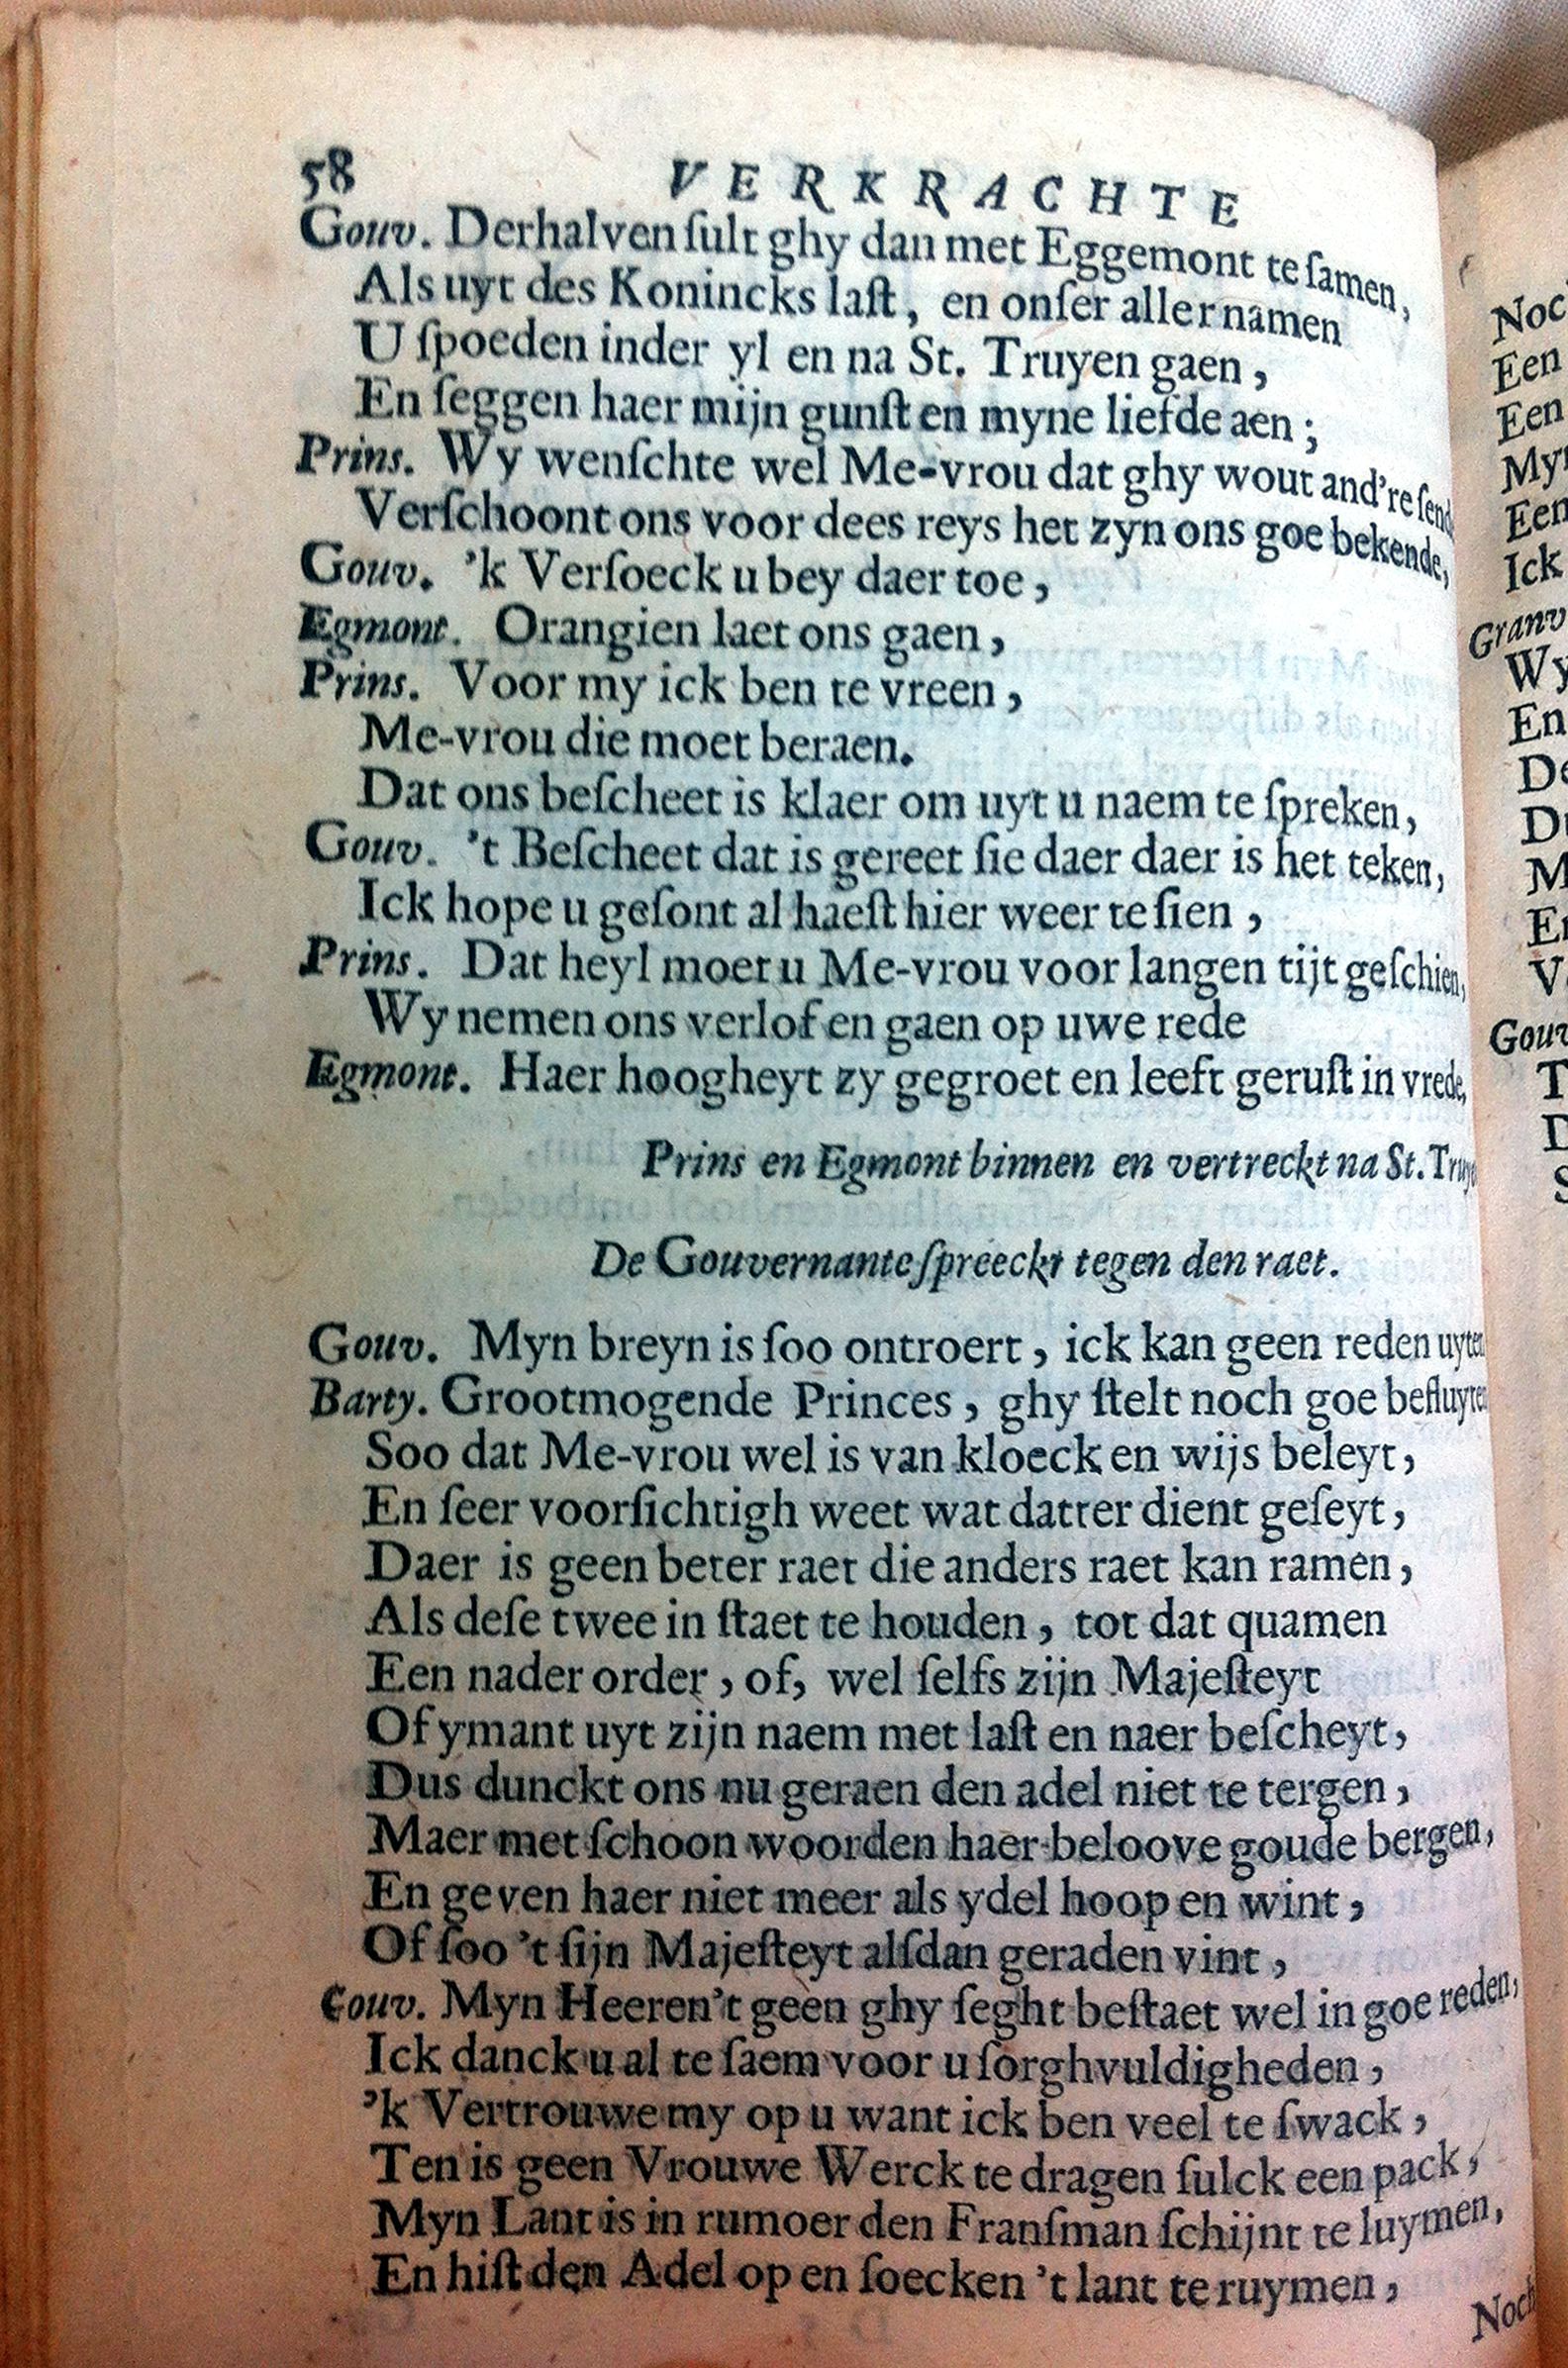 58 VERKRACHTE
Gouv. Derhalven ſult ghy dan met Eggemont te ſamen,
Als uyt des Konincks laſt, en onſer aller namen
U ſpoeden inder yl en na St. Truyen gaen,
En ſeggen haer mijn gunſt en myne liefde aen;
Prins. Wy wenſchte wel Me-vrou dat ghy wout and're ſend
Verſchoont ons voor dees reys het zyn ons goe bekende,
Gouv. 'k Verſoeck u bey daer toe,
Egmont. Orangien laet ons gaen,
Prins. Voor my ick ben te vreen,
Me-vrou die moet beraen.
Dat ons beſcheet is klaer om uyt u naem te ſpreken,
Gouv. 't Beſcheet dat is gereet ſie daer daer is het teken,
Ick hope u geſont al haeſt hier weer te ſien,
Prins. Dat heyl moet u Me-vrou voor langen tijt geſchien,
Wy nemen ons verlof en gaen op uwe rede
Egmont. Haer hoogheyt zy gegroet en leeft geruſt in vrede,
Prins en Egmont binnen en vertreckt na St. Truy
De Gouvernante ſpreeckt tegen den raet.
Gouv. Myn breyn is ſoo ontroert, ick kan geen reden uyten
Barty. Grootmogende Princes, ghy ſtelt noch goe beſluyten
Soo dat Me-vrou wel is van kloeck en wijs beleyt,
En ſeer voorſichtigh weet wat datter dient geſeyt,
Daer is geen beter raet die anders raet kan ramen,
Als deſe twee in ſtaet te houden, tot dat quamen
Een nader order, of, wel ſelfs zijn Majeſteyt
Of ymant uyt zijn naem met laſt en naer beſcheyt,
Dus dunckt ons nu geraen den adel niet te tergen,
Maer met ſchoon woorden haer beloove goude bergen,
En geven haer niet meer als ydel hoop en wint,
Of ſoo 't ſijn Majeſteyt alſdan geraden vint,
Gouv. Myn Heeren 't geen ghy ſeght beſtaet wel in goe reden,
Ick danck u al te ſaem voor u ſorghvuldigheden,
'k Vertrouwe my op u want ick ben veel te ſwack,
Ten is geen Vrouwe Werck te dragen ſulck een pack,
Myn Lant is in rumoer den Franſman ſchijnt te luymen,
En hiſt den Adel op en ſoecken 't lant te ruymen,
Noch
Noc
Een
Een
Myn
Een
Ick
Granv
Wy
En
De
M
V
Gouv
T